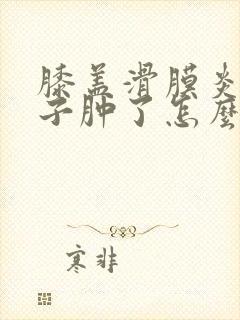 膝盖滑膜炎
子肿了怎麽
寒非